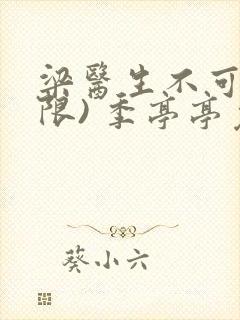 梁醫生不可
限) 季亭亭
葵小六